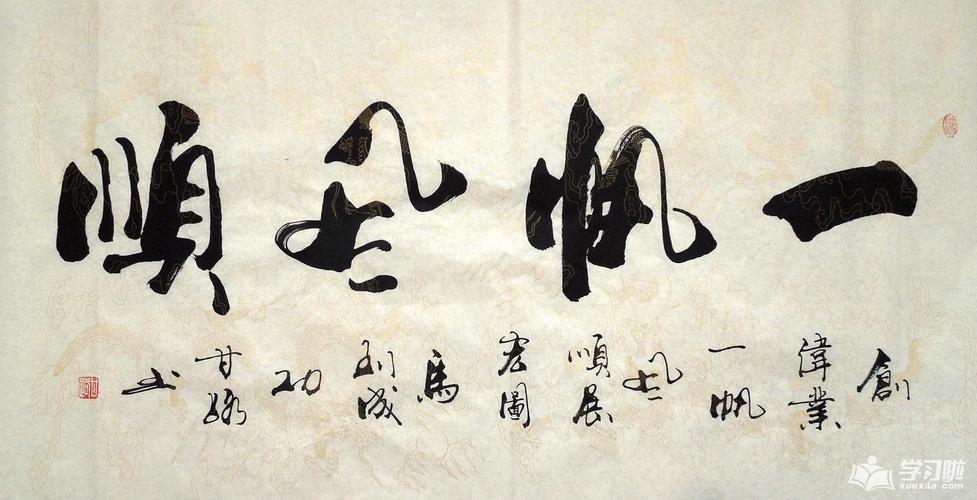 一帆風順
創偉業一帆風順展宏圖馬到成功甘书
学习啦
xuexila.com